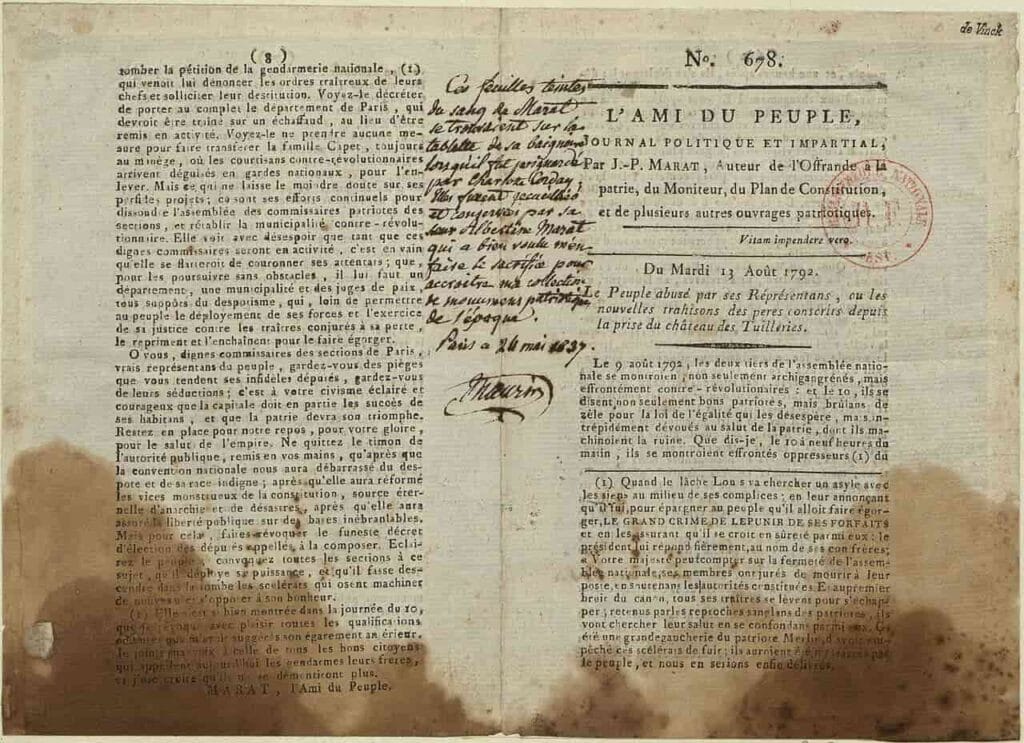 de Vinck
( 8 )
tomber la pétition de la gendarmerie nationale, (1)
qui venoit lui dénoncer les ordres traîtreux de leurs
chefs et solliciter leur destitution. Voyez-le décréter
de porter au complet le département de Paris, qui
devroit être traîné sur un échaffaud, au lieu d'être
remis en activité. Voyez-le ne prendre aucune me-
sure pour faire transférer la famille Capet, toujours
au manège, où les courtisans contre-révolutionnaires
arrivent déguisés en gardes nationaux, pour l'en-
lever. Mais ce qui ne laisse le moindre doute sur ses
perfides projets; ce sont ses efforts continuels pour
dissoudre l'assemblée des commissaires patriotes des
sections, et rétablir la municipalité contre-révolu-
tionnaire. Elle voit avec désespoir que tant que ces
dignes commissaires seront en activité, c'est en vain
qu'elle se flatteroit de couronner ses attentats; que,
pour les poursuivre sans obstacles, il lui faut un
département, une municipalité et des juges de paix,
tous suppôts du despotisme, qui, loin de permettre
au peuple le déployement de ses forces et l'exercice
de sa justice contre les traîtres conjurés à sa perte,
le repriment et l'enchaînent pour le faire égorger.
O vous, dignes commissaires des sections de Paris,
vrais représentans du peuple, gardez-vous des pièges
que vous tendent ses infideles députés, gardez-vous
de leurs séductions; c'est à votre civisme éclairé et
courageux que la capitale doit en partie les succès de
ses habitans, et que la patrie devra son triomphe.
Restez en place pour notre repos, pour votre gloire,
pour le salut de l'empire. Ne quittez le timon de
l'autorité publique, remis en vos mains, qu'après que
la convention nationale nous aura débarrassé du des-
pote et de sa race indigne; après qu'elle aura réformé
les vices monstrueux de la constitution, source éter-
nelle d'anarchie et de désastres, après qu'elle aura
assuré la liberté publique sur des bases inébranlables.
Mais pour cela, faites révoquer le funeste décret
d'élection des députés appellés à la composer. Eclai-
rez le peuple, convoquez toutes les sections à ce
sujet, qu'il déploye sa puissance, et qu'il fasse des-
cendre dans la tombe les scélérats qui osent machiner
de nouveau et s'opposer à son bonheur.
(1) Elle s'est si bien montrée dans la journée du 10,
que je révoque avec plaisir toutes les qualifications
que m'avoit suggérés son égarement antérieur.
Je joins ma voix à celle de tous les bons citoyens
qui appellent aujourd'hui les gendarmes leurs freres,
et j'ose croire qu'ils ne se démentiront plus.
MARAT, l'Ami du Peuple.
Ces feuilles teintes
du sang de Marat
se trouvaient sur la
tablette de sa baignoire
lorsqu'il fut poignardé
par Charlotte Corday;
Elles furent recueillies
et conservées par sa
sœur Albertine Marat
qui a bien voulu m'en
faire le sacrifice pour
accroitre ma collection
de monumens patriotiques
de l'époque.
Paris ce 26 mai 1837.
Maurin
No. 678.
L'AMI DU PEUPLE,
JOURNAL POLITIQUE ET IMPARTIAL,
Par J.-P. MARAT, Auteur de l'Offrande à la
patrie, du Moniteur, du Plan de Constitution,
et de plusieurs autres ouvrages patriotiques.
Vitam impendere vero.
Du Mardi 13 Août 1792.
Le Peuple abusé par ses Réprésentans, ou les
nouvelles trahisons des peres conscrits depuis
la prise du château des Tuilleries.
Le 9 août 1792, les deux tiers de l'assemblée natio-
nale se montroient, non seulement archigangrénés, mais
effrontément contre-révolutionnaires; et le 10, ils se
disent non seulement bons patriotes, mais brûlans de
zèle pour la loi de l'égalité qui les désespère, mais in-
trépidément dévoués au salut de la patrie, dont ils ma-
chinoient la ruine. Que dis-je, le 10 à neuf heures du
matin, ils se montroient effrontés oppresseurs (1) du
(1) Quand le lâche Louis va chercher un asyle avec
les siens au milieu de ses complices; en leur annonçant
qu'il fui, pour épargner au peuple qu'il alloit faire égor-
ger, LE GRAND CRIME DE LE PUNIR DE SES FORFAITS
et en les assurant qu'il se croit en sûreté parmi eux: le
président lui répond fièrement, au nom de ses confrères;
« Votre majesté peut compter sur la fermeté de l'assem-
blée nationale, ses membres ont jurés de mourir à leur
poste, en soutenant les autorités constituées. Et au premier
bruit du canon, tous ses traîtres se levent pour s'échap-
per; retenus par les reproches sanglans des patriotes, ils
vont chercher leur salut en se confondant parmi eux. Ç'a
été une grande gaucherie du patriote Merlin, d'avoir em-
pêché ces scélerats de fuir; ils auroient été massacrés par
le peuple, et nous en serions enfin délivrés.